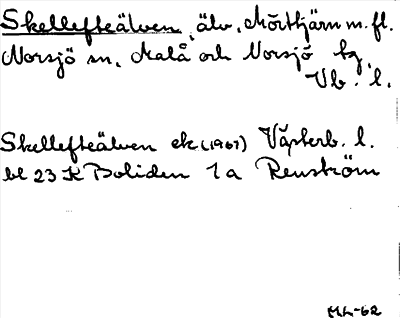 Skellefteälven, älv, Mörttjärn m.fl.
Norsjö sn, Malå och Norsjö hg,
Vb. l.
Skellefteälven ek (1967) Västerb. l.
bl 23 K Boliden 1a Renström
ML-62